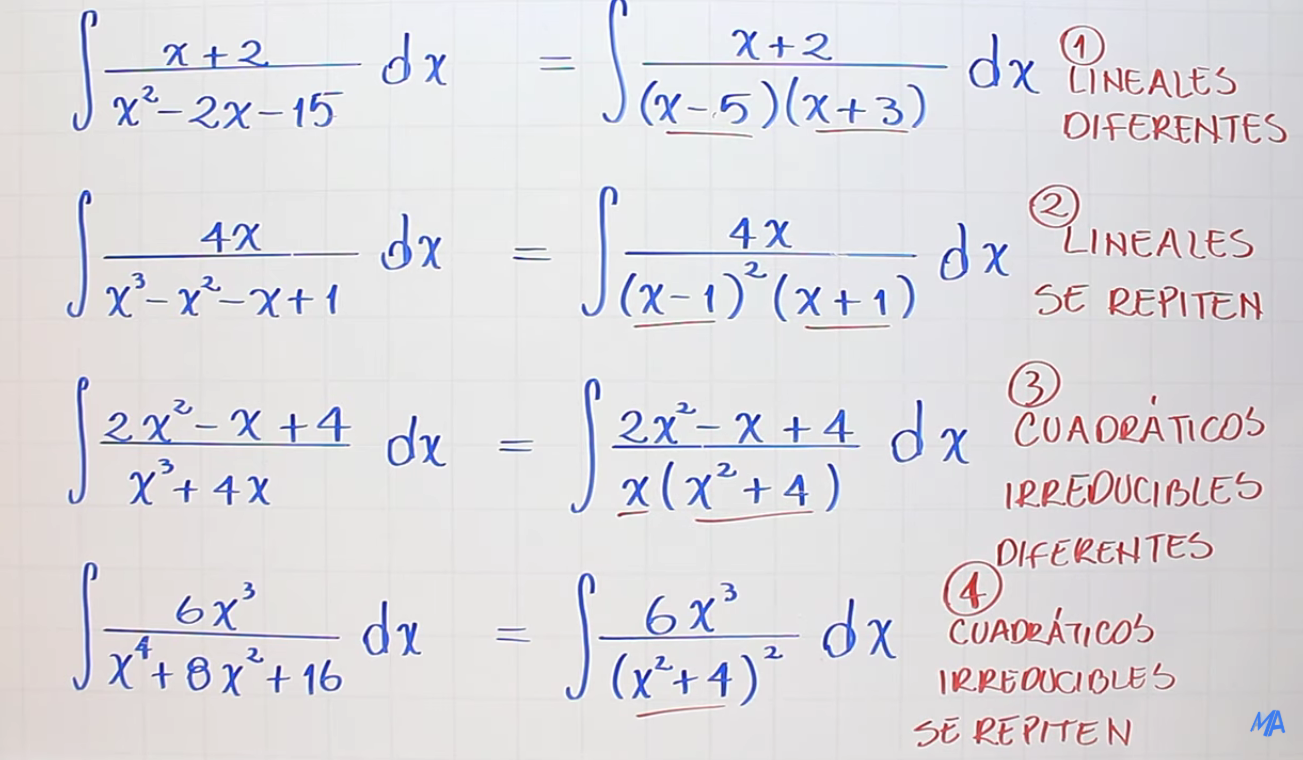 ∫ (x+2)/(x²-2x-15) dx = ∫ (x+2)/((x-5)(x+3)) dx ① LINEALES
DIFERENTES
∫ 4x/(x³-x²-x+1) dx = ∫ 4x/((x-1)²(x+1)) dx ② LINEALES
SE REPITEN
∫ (2x²-x+4)/(x³+4x) dx = ∫ (2x²-x+4)/(x(x²+4)) dx ③ CUADRÁTICOS
IRREDUCIBLES
DIFERENTES
∫ 6x³/(x⁴+8x²+16) dx = ∫ 6x³/(x²+4)² dx ④ CUADRÁTICOS
IRREDUCIBLES
SE REPITEN
MA